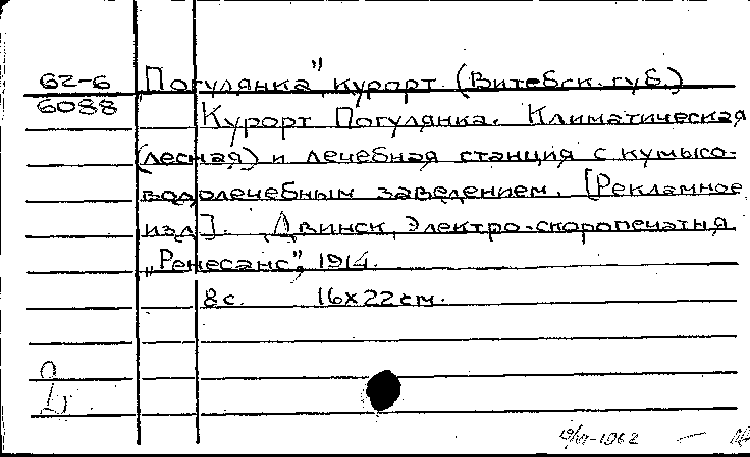 62-6
6088
„Погулянка", курорт (Витебск. губ.)
Курорт Погулянка. Климатическая
(лесная) и лечебная станция с кумысо-
водолечебным заведением. [Рекламное
изд]. Двинск, Электро-скоропечатня
„Ренесанс", 1914.
8 с. 16х22 см.